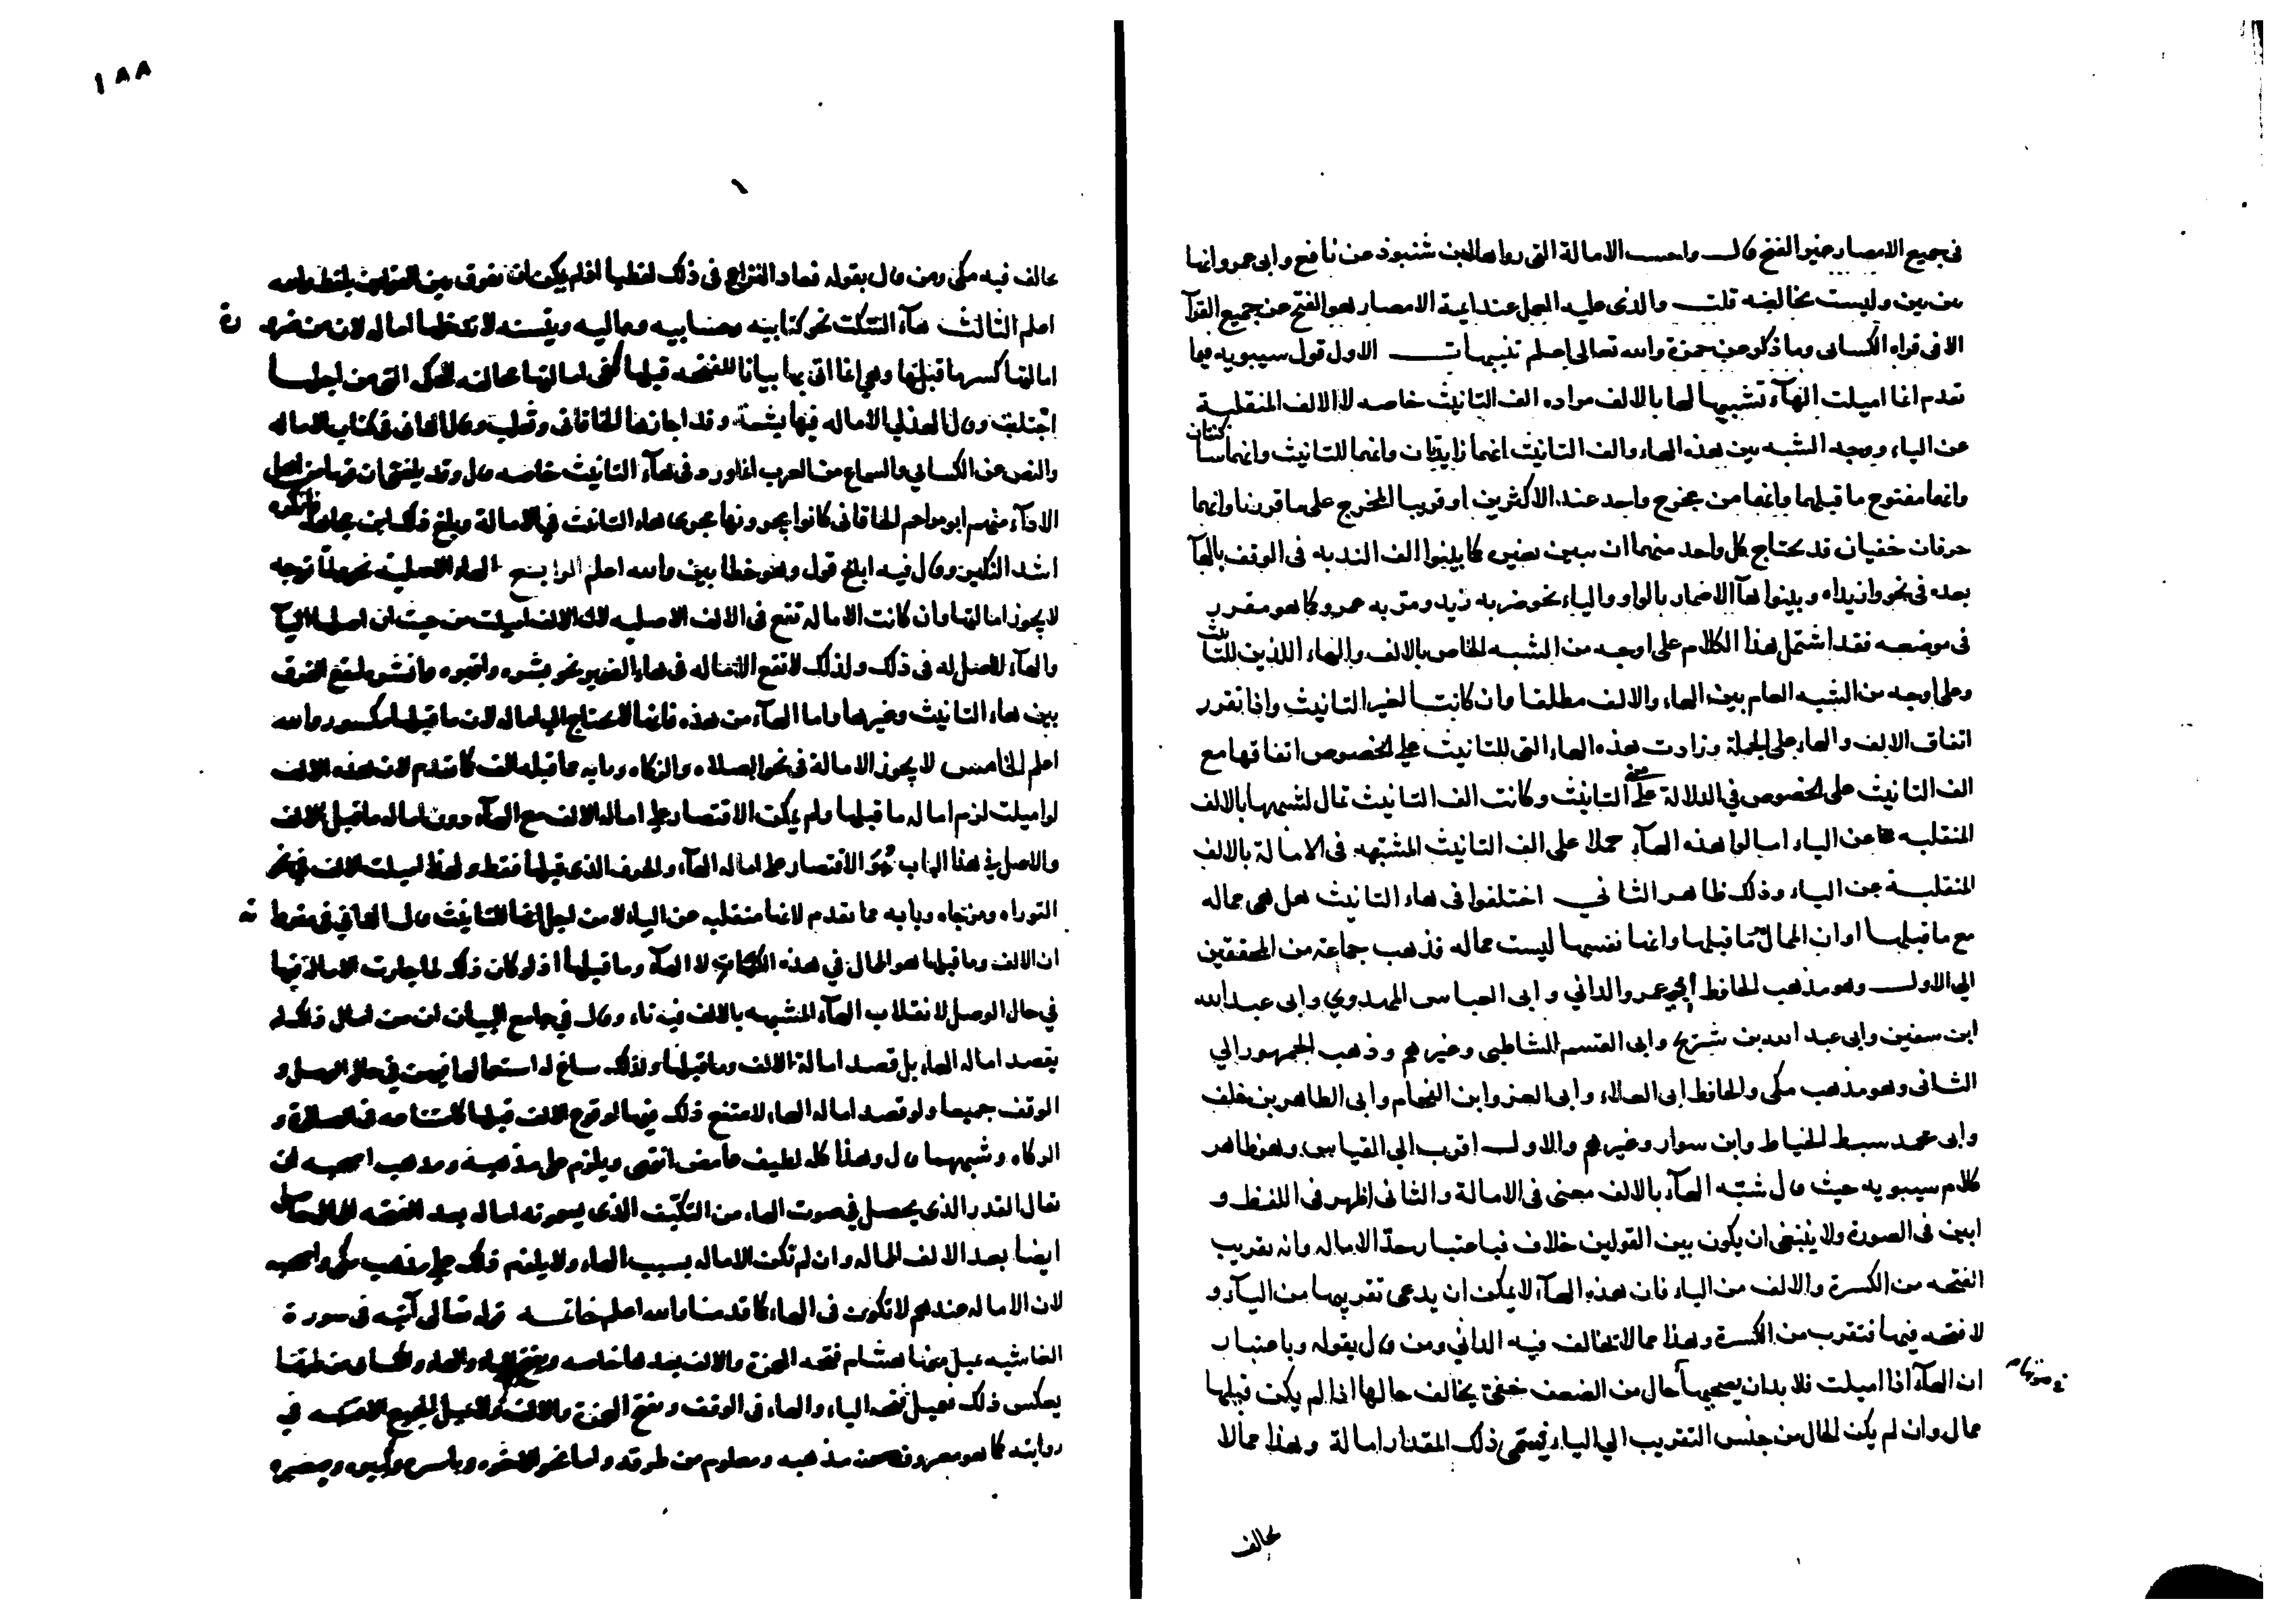 في جميع الامصار حينو الفتح قال واحسب الامالة التي رواها ابن شنبوذ عن نافع وابي عمرو انها
بين بين وليست بخالصه قلت والذي عليه العمل عند ايمة الامصار هو الفتح عن جميع القرآ
الا في قراه الكسائي وما ذكر عن حمزة والله تعالى اعلم تنبيهات الاول قول سيبويه فيما
تقدم انما اميلت الهآء تشبيها لها بالالف مراده الف التانيث خاصه لا الالف المنقلبة
عن الياء ووجه الشبه بين هذه الهاء والف التانيث انهما زايدتان وانهما للتانيث وانهما ساكنتان
وانهما مفتوح ما قبلهما وانهما من مخرج واحد عند الاكثرين او قريبا المخرج على ما قررنا وانهما
حرفان خفيان قد يحتاج كل واحد منهما ان يبين بغيره كما بينوا الف الندبه في الوقف بالهآ
بعده في نحو وازيداه وبينوا هآ الاضمار بالواو والياء نحو ضربه زيد ومر به عمرو كما هو مقرر
في موضعه فقد اشتمل هذا الكلام على اوجه من الشبه الخاص بالالف والهاء اللذين للتانيث
وعلى اوجه من الشبه العام بين الهاء والالف مطلقا وان كانتا لغير التانيث واذا تقرر
اتفاق الالف والهاء على الجملة وزادت هذه الهاء التي للتانيث على الخصوص اتفاقها مع
الف التانيث على الخصوص في الدلالة على معنى التانيث وكانت الف التانيث تمال لشبهها بالالف
المنقلبه عن الياء امالوا هذه الهآء حملا على الف التانيث المشبهه في الامالة بالالف
المنقلبة عن الياء وذلك ظاهر الثاني اختلفوا في هاء التانيث هل هي مماله
مع ما قبلها او ان الممال ما قبلها وانها نفسها ليست مماله فذهب جماعة من المحققين
الى الاول وهو مذهب الحافظ ابي عمرو الداني وابي العباس المهدوي وابي عبد الله
ابن سفين وابي عبد الله بن شريح وابي القسم الشاطبي وغيرهم وذهب الجمهور الي
الثاني وهو مذهب مكي والحافظ ابي العلاء وابي العز وابن الفحام وابي الطاهر بن خلف
وابي محمد سبط الخياط وابن سوار وغيرهم والاول اقرب الي القياس وهو ظاهر
كلام سيبويه حيث قال شبه الهآء بالالف معنى في الامالة والثاني اظهر في اللفظ و
ابين في الصورة ولا ينبغي ان يكون بين القولين خلاف فباعتبار حدّ الاماله وانه تقريب
الفتحه من الكسرة والالف من الياء فان هذه الهآء لا يمكن ان يدعى تقريبها من اليآء و
لا فتحه فيها فتقرب من الكسرة وهذا مما لا يخالف فيه الداني ومن قال بقوله وباعتبار
ان الهآء اذا اميلت فلا بد ان يصحبها حال من الضعف خفي يخالف حالها اذا لم يكن قبلها
في صوتها
ممال وان لم يكن الحال من جنس التقريب الي الياء فيسمى ذلك المقدار امالة وهذا مما لا
يخالف
١٨٨
يخالف فيه مكي ومن قال بقوله فعاد النزاع في ذلك لفظيا اذ لم يكن ان يفرق بين القولين بلفظ والله
اعلم الثالث هآء السكت نحو كتابيه وحسابيه وماليه ويتسنه لا تدخلها اماله لان من ضرورة
امالتها كسر ما قبلها وهي انما اتى بها بيانا للفتحه قبلها ففي امالتها مخالفه للحكم التي من اجلها
اجتلبت وقال الهذلي الاماله فيها بشعة وقد اجازها الخاقاني وثعلب وقال الداني في كتاب الاماله
والنص عن الكسائي والسماع من العرب انما ورد في هآء التانيث خاصه قال وقد بلغني ان قوما من اهل
الادآء منهم ابو مزاحم الخاقاني كانوا يجرونها مجرى هاء التانيث في الامالة وبلغ ذلك ابن مجاهد فانكره
اشد النكير وقال فيه ابلغ قول وهو خطا بين والله اعلم الرابع الهاء الاصلية نحو ولما توجه
لا يجوز امالتها وان كانت الاماله تقع في الالف الاصليه لان الالف اميلت من حيث ان اصلها اليآ
والهآء لا اصل له في ذلك ولذلك لا تقع الاماله في هاء الضمير نحو يسره واقبره وانشره ليقع الفرق
بين هاء التانيث وغيرها واما الهآء من هذه فانها لا تحتاج الى اماله لان ما قبلها مكسور والله
اعلم الخامس لا يجوز الامالة في نحو الصلاه والزكاه وبابه مما قبله الف كما تقدم لان هذه الالف
لو اميلت لزم اماله ما قبلها ولم يمكن الاقتصار على اماله الالف مع الهآء دون اماله ما قبل الالف
والاصل في هذا الباب هو الاقتصار على اماله الهآء والحرف الذي قبلها فقط ولهذا اميلت الالف في نحو
التوراه ومزجاه وبابه مما تقدم لانها منقلبه عن الياء لا من اجل انها للتانيث قال الداني في مفرداته
ان الالف وما قبلها هو الممال في هذه الكلمات لا الهآء وما قبلها اذ لو كان ذلك لما جازت الامالة فيها
في حال الوصل لانقلاب الهآء المشبهه بالالف فيه تاء وقال في جامع البيان ان من امال ذلك لم
يقصد اماله الهاء بل قصد امالة الالف وما قبلها ولذلك ساغ له استعمالها فيهن في حال الوصل و
الوقف جميعا ولو قصد اماله الهاء لامتنع ذلك فيها لوقوع الالف قبلها كامتناعه في الصلاة و
الزكاه وشبههما قال وهذا كله لطيف غامض انتهى ويلزم على مذهبه ومذهب اصحابه ان
يقال القدر الذي يحصل في صوت الهاء من التكيف الذي يسمونه اماله بعد الفتحه الممالة حاصل
ايضا بعد الالف الممالة وان لم تكن الاماله بسبب الهاء ولا يلزم ذلك على مذهب مكي واصحابه
لان الاماله عندهم لا تكون في الهاء كما قدمنا والله اعلم خاتمه قوله تعالى آنيه في سورة
الغاشيه يميل منها هشام فتحه الهمزة والالف بعدها خاصه ويفتح الياء والهاء والكسائي من طرقنا
يعكس ذلك فيميل فتحه الياء والهاء في الوقف ويفتح الهمزة والالف ولا يميل الجميع الا قتيبه في
روايته كما هو معروف من مذهبه ومعلوم من طرقه واما نحو الاخره وباسره وكبيره وصغيره